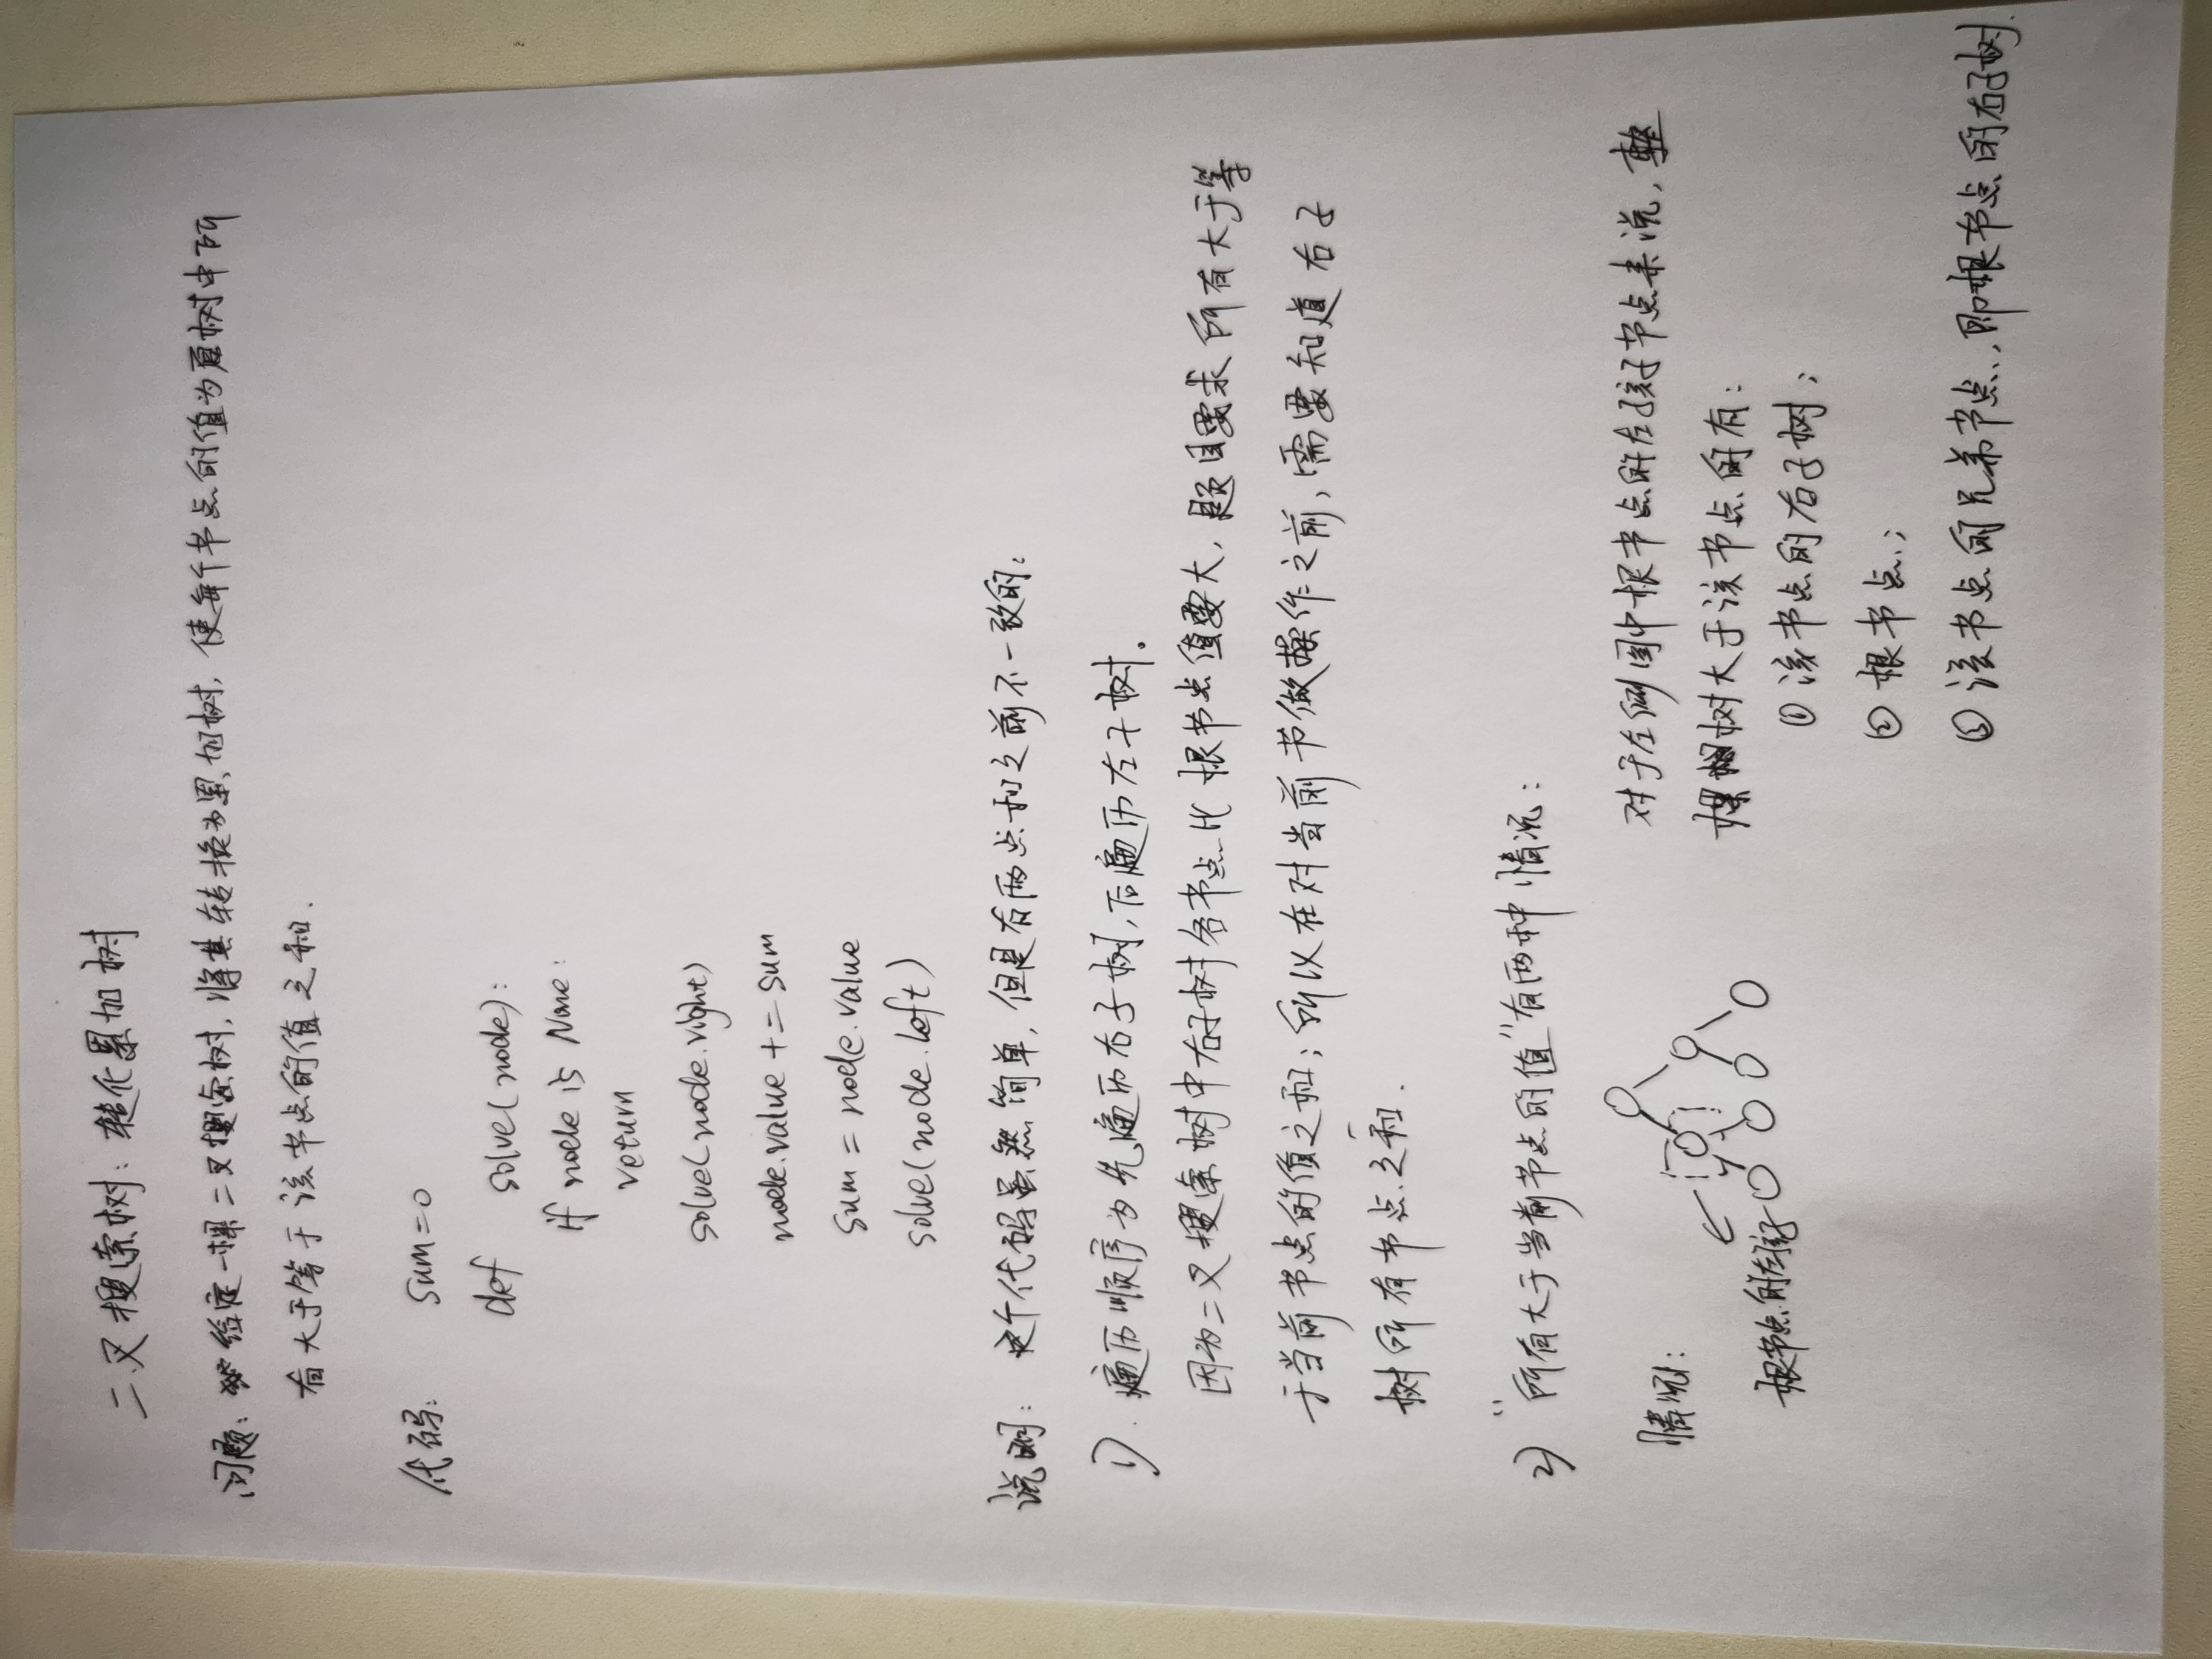 二叉搜索树：转化累加树
问题：给定一棵二叉搜索树，将其转换为累加树，使每个节点的值为原树中所
有大于等于该节点的值之和.
代码： sum=0
def solve(node):
if node is None:
return
solve(node.right)
node.value += sum
sum = node.value
solve(node.left)
说明：这个代码虽然简单，但是有两点和之前不一致的：
1）.遍历顺序为先遍历右子树，后遍历左子树。
因为二叉搜索树中右子树各节点比根节点值要大，题目要求所有大于等
于当前节点的值之和；所以在对当前节做操作之前，需要知道右子
树所有节点之和.
2）“所有大于当前节点的值”有两种情况：
情况1：
根节点的左孩子
对于左侧图中根节点的左孩子节点来说，整
棵树大于该节点的有：
① 该节点的右子树；
② 根节点；
③ 该节点的兄弟节点，即根节点的右子树.